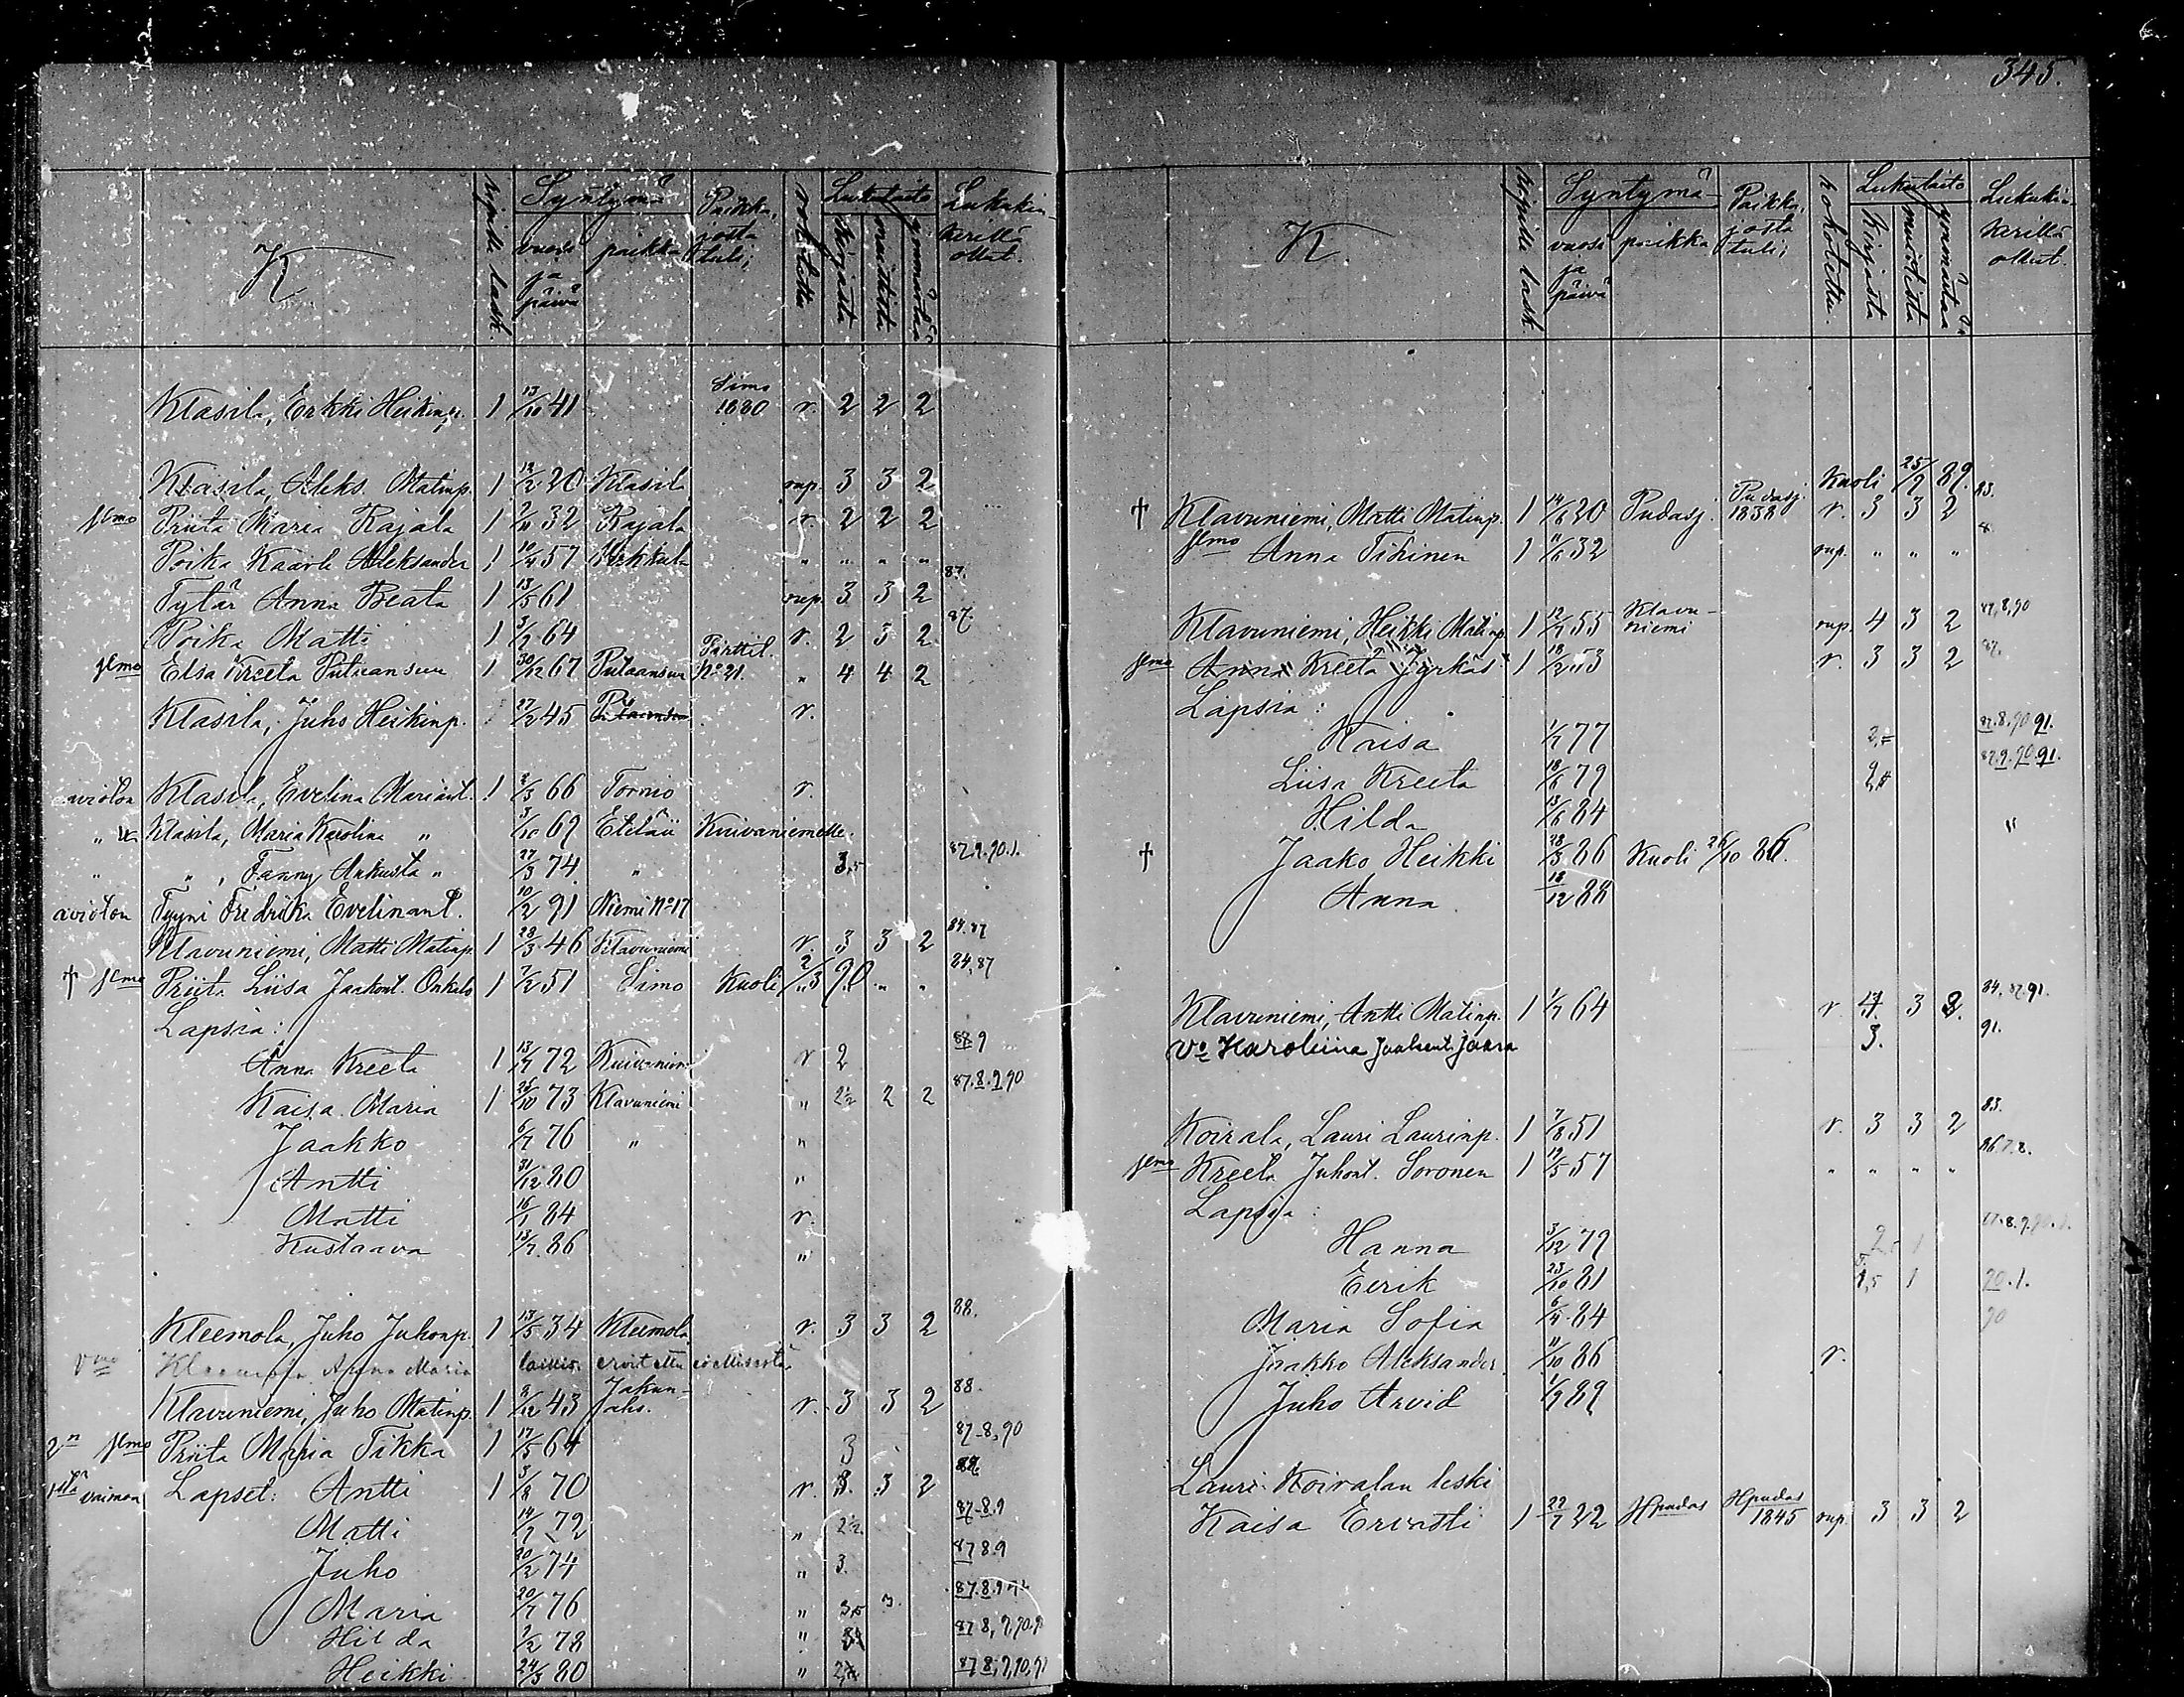 345.
K
Ripille lask.
Syntymä
vuosi ja päivä
paikka
Paikka, josta tuli;
rokotettu
Lukutaito
kirjasta
muistista
ymmärtää
Lukukinkerillä ollut.
Simo
Klasila, Erkki Heikinp. 1 13/10 41 1880 r. 2 2 2
Klasila, Aleks. Matinp. 1 12/2 20 Klasila rup. 3 3 2
jlmo Priita Maria Rajala 1 32 Rajala r. 2 2 2
Poika Kaarle Aleksander 1 10/4 57 " " " "
Tytär Anna Beata 1 13/5 61 rup. 3 3 2 87.
Poika Matti 1 64 r. 2 3 2 87.
jlmo Elsa Kreeta 1 30/12 67 No 21. " 4 4 2
Klasila, Juho Heikinp. 27/2 45 r.
avioton Klasila, Evelina Mariant. 1 2/3 66 Tornio r.
" Klasila, Maria Karolina " 3/10 69 Eteläii Kuivaniemelle.
" " , Fanny Aukusta " 27/3 74 " 3,5
avioton Tyyni Fredrika Evelinant. 10/2 91 Niemi No 17
Klavuniemi, Matti Matinp. 1 28/3 46 Klavuniemi r. 3 3 2 84.87
† jlmo Priita Liisa Jaakont. Onkalo 1 7/2 51 Simo Kuoli 2/3 90 24,87
Lapsia:
Anna Kreeta 1 13/7 72 Kuivaniemi r 2 88 9
Kaisa Maria 1 25/10 73 Klavuniemi " 2½ 2 2 87.8.9 90
Jaakko 6/7 76 " "
Antti 31/12 80 "
Matti 16/1 84 r.
Kustaava 13/7 86 "
Kleemola, Juho Juhonp. 1 13/5 34 Kleemola r. 3 3 2 88.
Anna Maria
Klavuniemi, Juho Matinp. 1 43 r. 3 3 2 88.
2n jlmo Priita Maria Tikka 1 17/5 64 3 87-8,90
vaimon Lapset: Antti 1 3/8 70 r. 3. 3 2
Matti 14/7 72 " 2½ 87-8.9
Juho 20/2 74 " 3. 87 8.9
Maria 20/7 76 "
Hilda 78 "
Heikki 24/3 80 "
K.
Ripille lask
Syntymä
vuosi ja päivä
paikka
Paikka, josta tuli;
rokotettu.
Lukutaito
Kirjasta
muistista
ymmärtää
Lukukinkerillä ollut.
Kuoli 25/9 89.
† Klavuniemi, Matti Matinp. 1 14/6 20 Pudasj. Pudasj. 1838 r. 3 3 2 83.
jlmo Anna Tihinen 1 11/6 32 rup. " " "
Klavuniemi, Heikki Matinp. 1 55 Klavuniemi rup. 4 3 2 87,8,90
jlmo Anna Kreeta Jyrkäs 1 18/2 53 r. 3 3 2 87.
Lapsia:
Kaisa 77 87.8.90 91.
Liisa Kreeta 18/6 79 87.9.90.91.
Hilda 13/6 84 "
† Jaako Heikki 23/3 86 Kuoli 26/10 86.
Anna 18/12 88
Klavuniemi, Antti Matinp. 1 64 r. 4 3 2. 84.87.91.
Vo Karoliina Jaara 3. 91.
Koirala, Lauri Laurinp. 1 7/8 51 r. 3 3 2 83.
jlmo Kreeta Juhont. Soronen 1 19/5 57 " " " " 86.7.8.
Lapsia:
Hanna 3/12 79
Eerik 23/10 81 1,5 1 90.1.
Maria Sofia 84 90
Jaakko Aleksander 11/10 86 r.
Juho Arvid 89
Lauri Koiralan leski
Kaisa Ervasti 1 22/7 22 Hpudas Hpudas 1845 rup 3 3 2